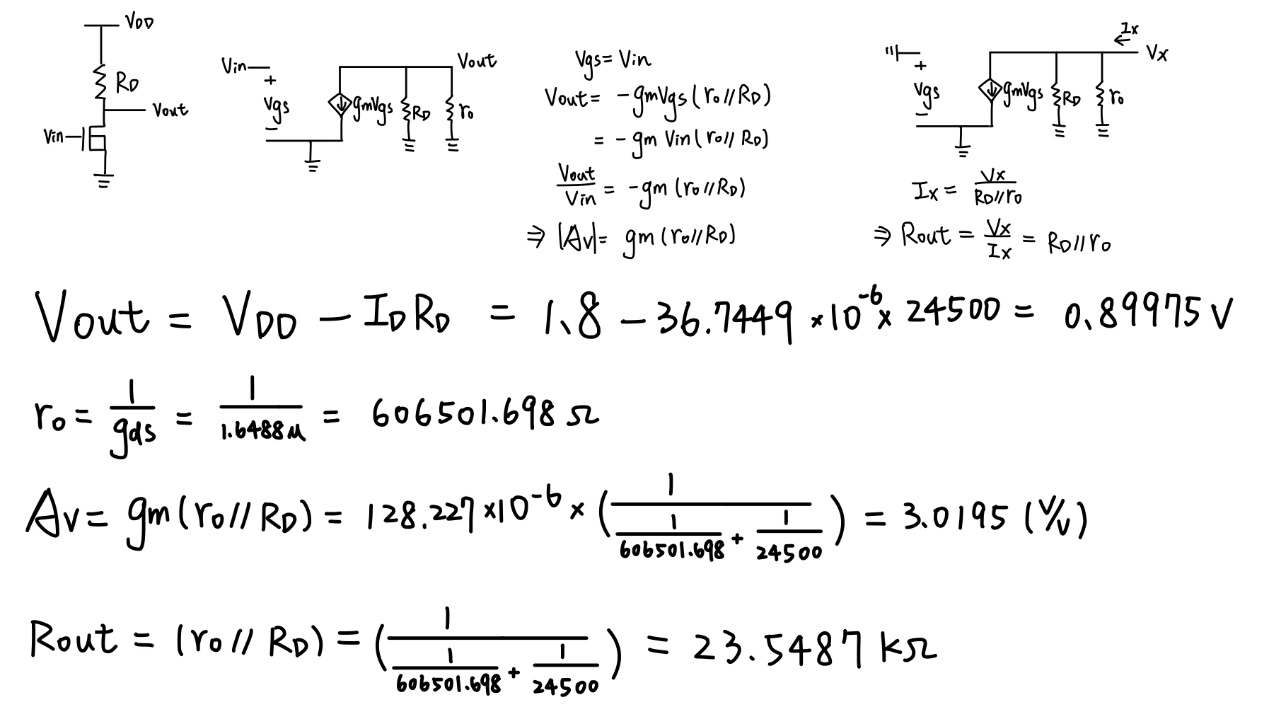 VDD
RD
Vout
Vin
Vin
+
Vgs
−
gmVgs
RD
ro
Vout
Vgs = Vin
Vout = −gmVgs(ro//RD)
= −gm Vin(ro//RD)
Vout/Vin = −gm(ro//RD)
⇒ |Av| = gm(ro//RD)
Ix
Vx
+
Vgs
−
gmVgs
RD
ro
Ix = Vx/RD//ro
⇒ Rout = Vx/Ix = RD//ro
Vout = VDD − IDRD = 1.8 − 36.7449 ×10^-6 × 24500 = 0.89975 V
ro = 1/gds = 1/1.6488μ = 606501.698 Ω
Av = gm(ro//RD) = 128.227×10^-6 × (1/(1/606501.698 + 1/24500)) = 3.0195 (V/V)
Rout = (ro//RD) = (1/(1/606501.698 + 1/24500)) = 23.5487 kΩ